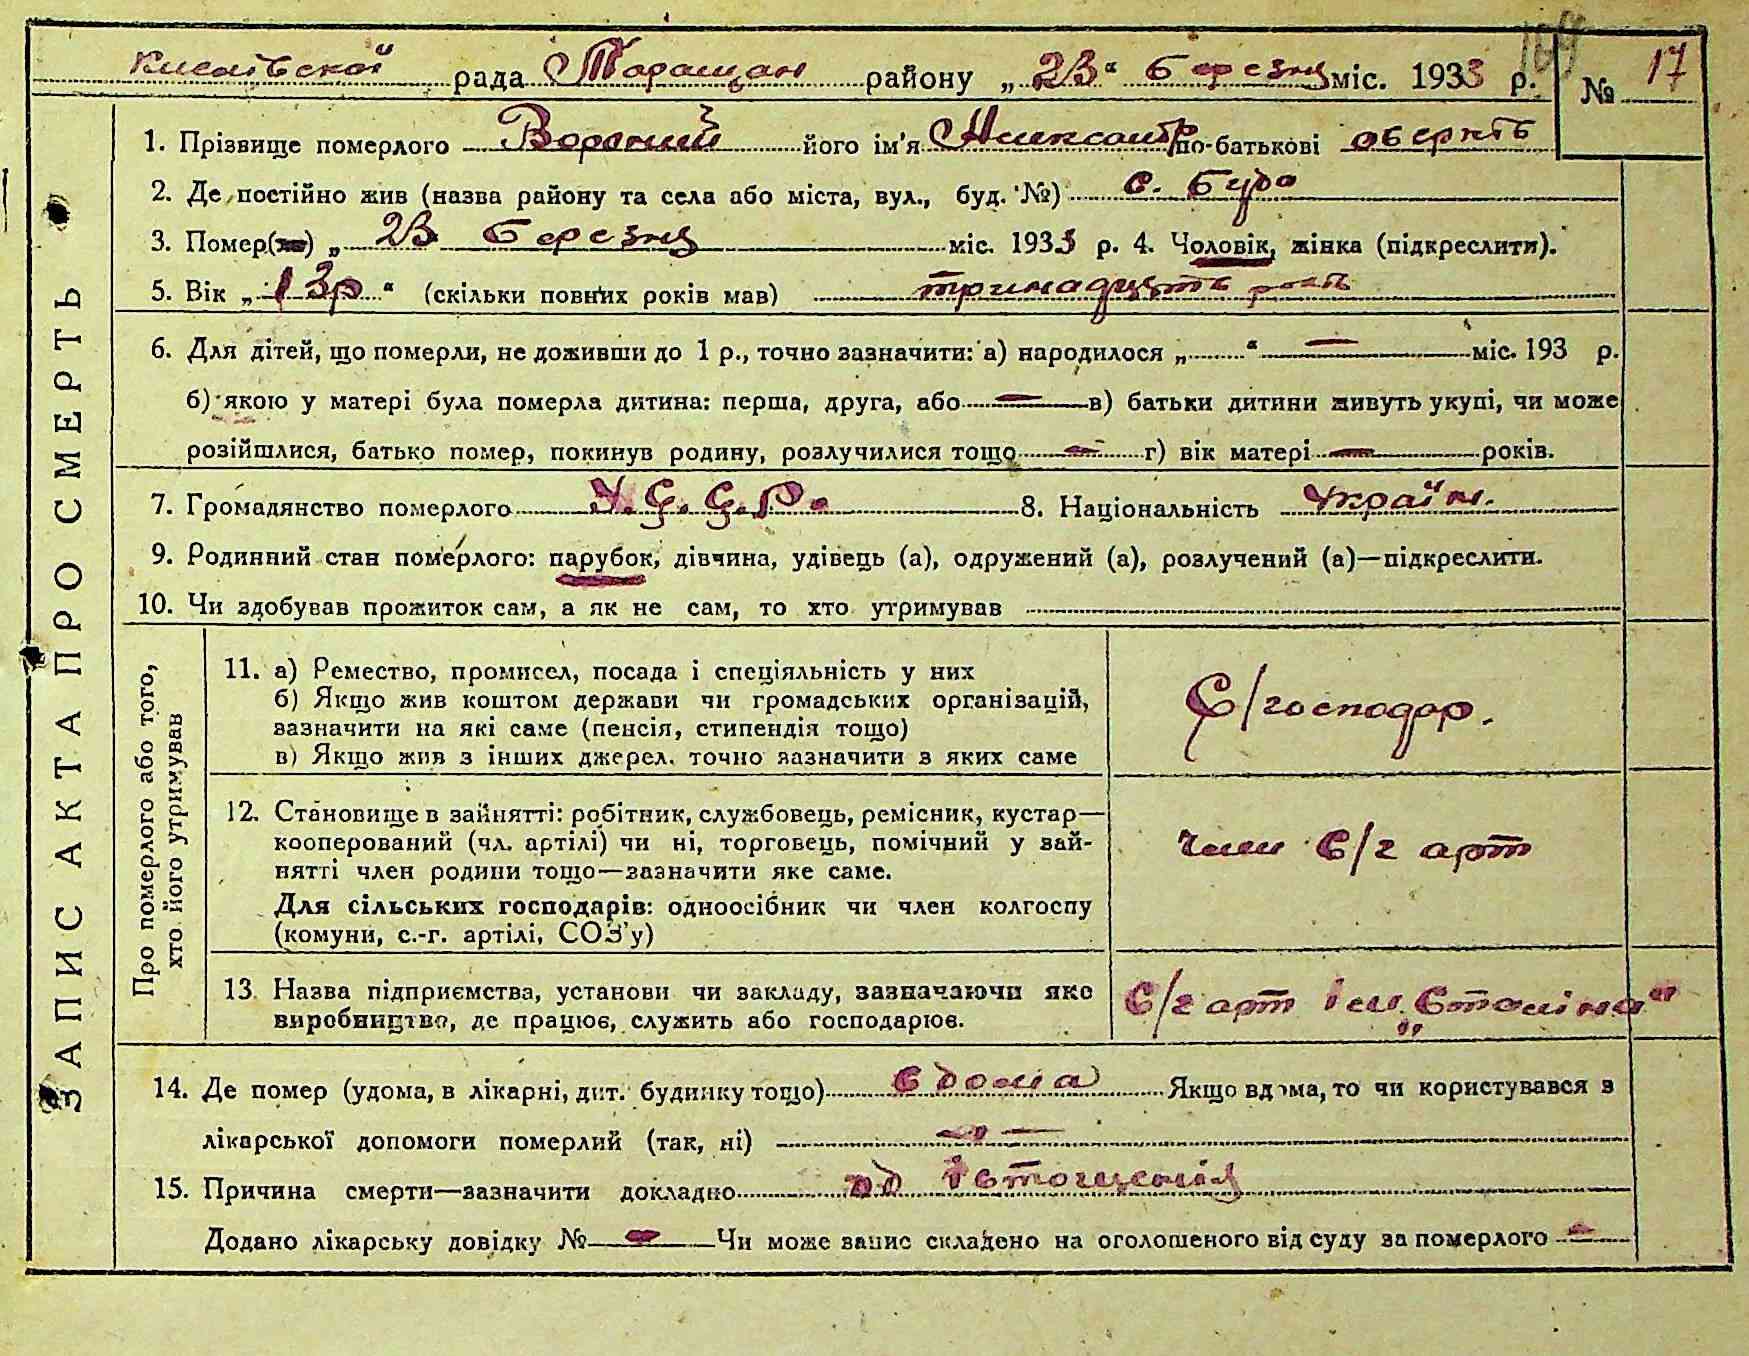 рада Таращан району „23“ березня міс. 1933 р. № 17
1. Прізвище померлого Вороний його ім'я по-батькові
2. Де постійно жив (назва району та села або міста, вул., буд. №) с. Буда
3. Помер(ла) „23 березня міс. 1933 р. 4. Чоловік, жінка (підкреслити).
5. Вік „13р“ (скільки повних років мав) тринадцять років
6. Для дітей, що померли, не доживши до 1 р., точно зазначити: а) народилося „......“ — міс. 193 р.
б) якою у матері була померла дитина: перша, друга, або — в) батьки дитини живуть укупі, чи може
розійшлися, батько помер, покинув родину, розлучилися тощо — г) вік матері — років.
7. Громадянство померлого У.С.С.Р. 8. Національність Україн.
9. Родинний стан померлого: парубок, дівчина, удівець (а), одружений (а), розлучений (а)—підкреслити.
10. Чи здобував прожиток сам, а як не сам, то хто утримував
ЗАПИС АКТА ПРО СМЕРТЬ
Про померлого або того,
хто його утримував
11. а) Ремество, промисел, посада і спеціяльність у них
б) Якщо жив коштом держави чи громадських організацій,
зазначити на які саме (пенсія, стипендія тощо)
в) Якщо жив з інших джерел, точно зазначити з яких саме
С/господар.
12. Становище в зайнятті: робітник, службовець, ремісник, кустар—
кооперований (чл. артілі) чи ні, торговець, помічний у зай-
нятті член родини тощо—зазначити яке саме.
Для сільських господарів: одноосібник чи член колгоспу
(комуни, с.-г. артілі, СОЗ'у)
член С/г арт
13. Назва підприємства, установи чи закладу, зазначаючи яке
виробництво, де працює, служить або господарює.
С/г арт ім „Сталіна“
14. Де помер (удома, в лікарні, дит. будинку тощо) вдома Якщо вдома, то чи користувався з
лікарської допомоги померлий (так, ні) —
15. Причина смерти—зазначити докладно од істощенія
Додано лікарську довідку № — Чи може запис складено на оголошеного від суду за померлого —